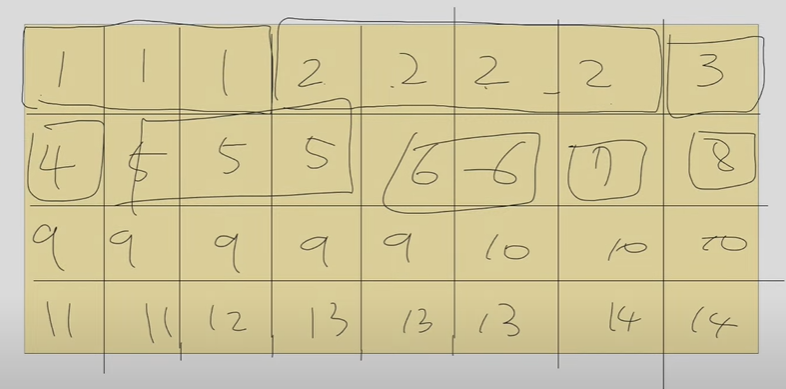 1 1 1 2 2 2 2 3
4 5 5 5 6 6 7 8
9 9 9 9 9 10 10 10
11 11 12 13 13 13 14 14